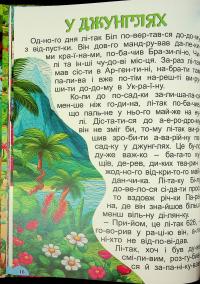 У ДЖУНГЛЯХ
Од-но-го дня лі-так Біл по-вер-тав-ся до-до-му
з від-пуст-ки. Він дов-го манд-ру-вав да-ле-ки-
ми кра-ї-на-ми, по-ба-чив Бра-зи-лі-ю,
лі та ін-ші чу-до-ві міс-ця. За-раз лі-так
мав сіс-ти в Ар-ген-ти-ні, на-бра-ти
па-ли-ва і вже по-тім на-реш-ті ви-ру-
ши-ти до-до-му в Ук-ра-ї-ну.
Ко-ли до по-сад-ки за-ли-ша-ло-ся
мен-ше ніж го-ди-на, лі-так по-ба-чив,
що паль-не у ньо-го май-же на
лі. Діс-та-ти-ся до а-е-ро-дро-му
він не зміг би, то-му лі-так ви-рі-
шив зро-би-ти а-ва-рій-ну по-
сад-ку у джунг-лях. Це бу-ло
ду-же важ-ко — ба-га-то ку-
щів, де-рев, ди-ких тва-рин
жод-но-го від-кри-то-го май-
дан-чи-ка. Лі-та-ку Бі-лу
до-ве-ло-ся сі-да-ти прос-
то вздовж річ-ки Па-ра-
на, де він знай-шов більш-
менш віль-ну ді-лян-ку.
— При-йом, це лі-так 626,
го-во-рив у ра-ці-ю він,
ні-хто не від-по-ві-дав.
Лі-так, хоч і був ду-же
смі-ли-вим, роз-гу-бив-
ся й за-па-ні-ку-вав
16